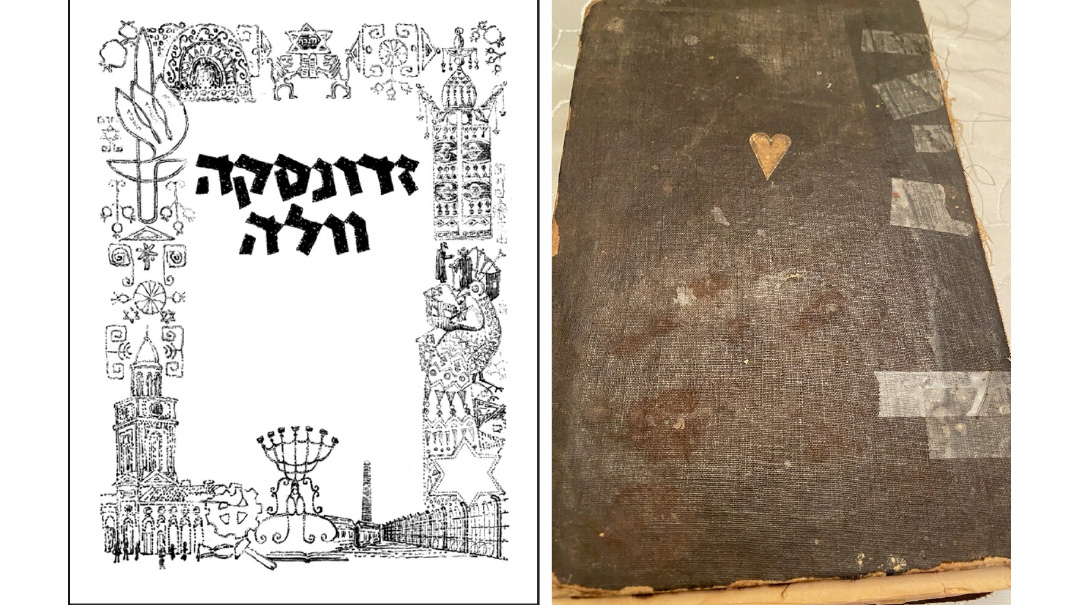 זדונסקה
וולה